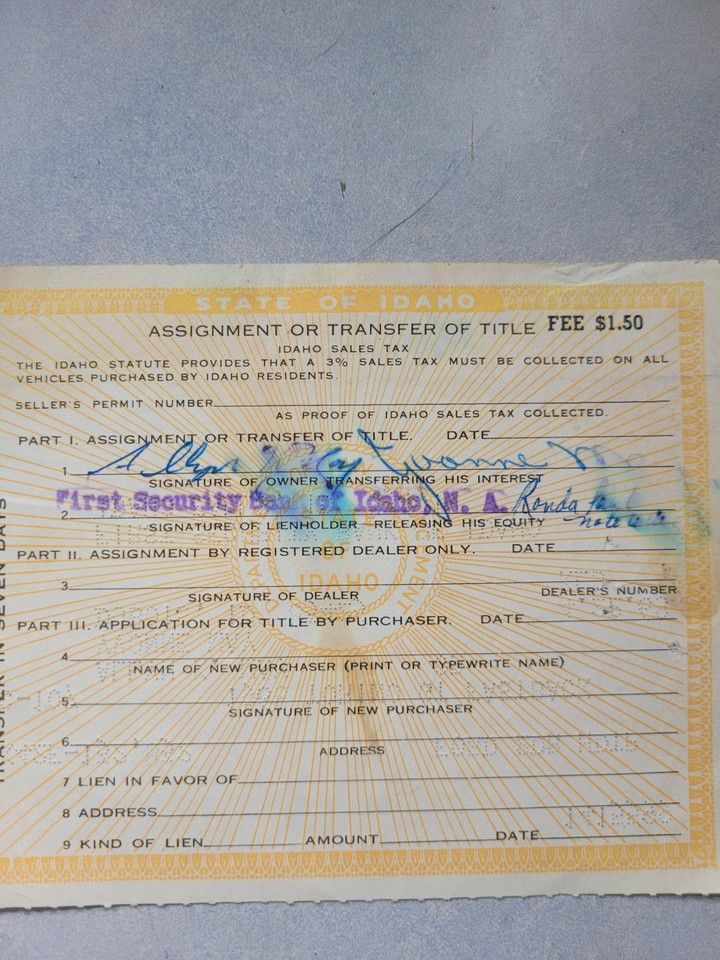 STATE OF IDAHO
ASSIGNMENT OR TRANSFER OF TITLE FEE $1.50
IDAHO SALES TAX
THE IDAHO STATUTE PROVIDES THAT A 3% SALES TAX MUST BE COLLECTED ON ALL
VEHICLES PURCHASED BY IDAHO RESIDENTS.
SELLER'S PERMIT NUMBER
AS PROOF OF IDAHO SALES TAX COLLECTED.
PART I. ASSIGNMENT OR TRANSFER OF TITLE. DATE
1 Yvonne
SIGNATURE OF OWNER TRANSFERRING HIS INTEREST
First Security Bank of Idaho, N. A. Ronda
2
SIGNATURE OF LIENHOLDER RELEASING HIS EQUITY
PART II. ASSIGNMENT BY REGISTERED DEALER ONLY. DATE
3
SIGNATURE OF DEALER DEALER'S NUMBER
PART III. APPLICATION FOR TITLE BY PURCHASER. DATE
4
NAME OF NEW PURCHASER (PRINT OR TYPEWRITE NAME)
5
SIGNATURE OF NEW PURCHASER
6
ADDRESS
7 LIEN IN FAVOR OF
8 ADDRESS
9 KIND OF LIEN AMOUNT DATE
TRANSFER IN SEVEN DAYS
IDAHO